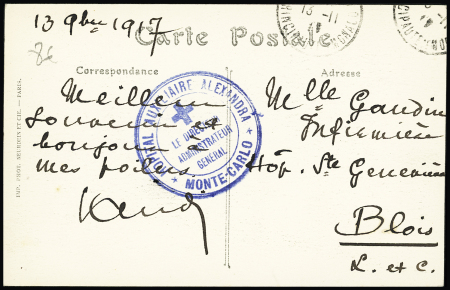 13 9bre 1917
Carte Postale
Correspondance
Adresse
Meilleur
souvenir et
bonjour à
mes poilus.
HÔPITAL AUXILIAIRE ALEXANDRA
LE DIRECTEUR
ADMINISTRATEUR
GÉNÉRAL
MONTE-CARLO
Mlle Gaudin
Infirmière
Hôp. Ste Geneviève
Blois
L. et C.
13-11
IMP. PHOT. NEURDEIN ET CIE. — PARIS.